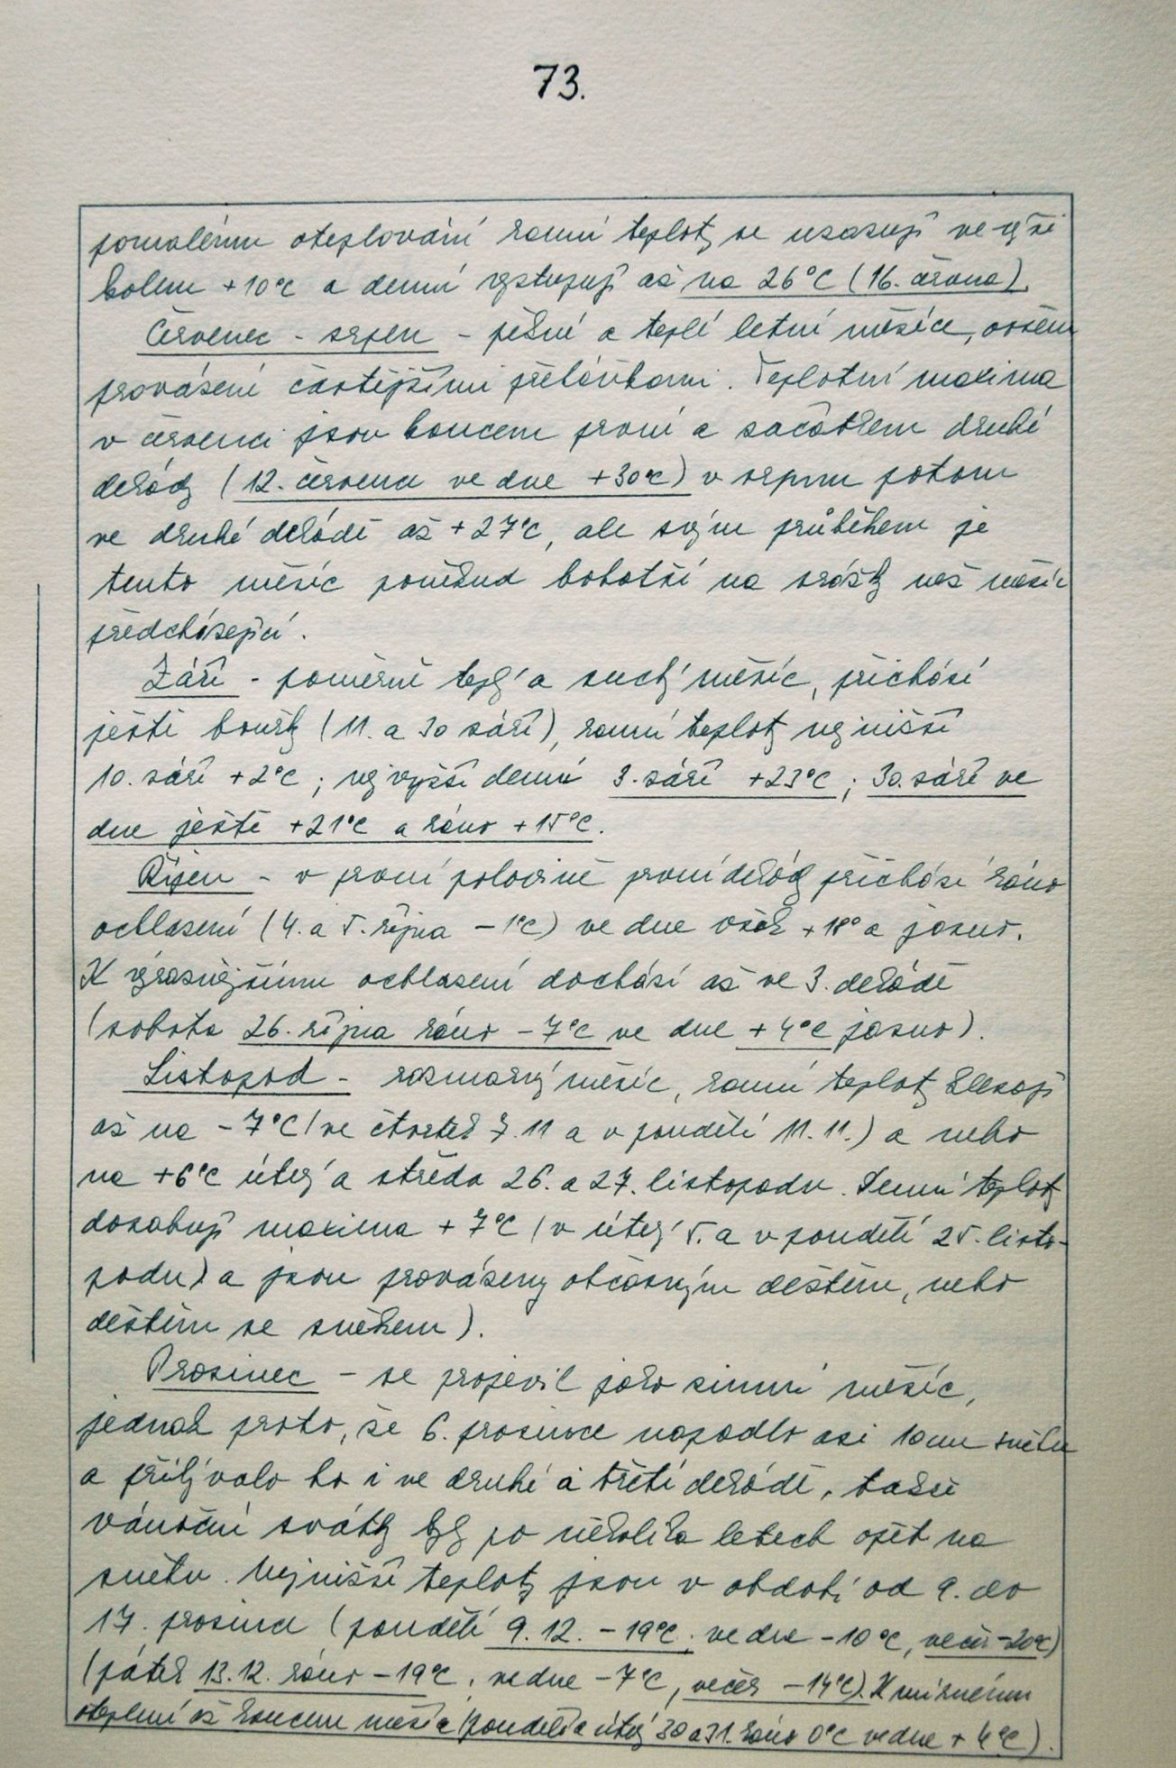 73.
pomalému oteplování ranní teploty se usazují ve výši
kolem +10°C a denní vystupují až na 26°C (16. června).
Červenec - srpen - pěkné a teplé letní měsíce, ovšem
provázené častějšími přeháňkami. Teplotní maxima
v červenci jsou koncem první a začátkem druhé
dekády (12. července ve dne +30°C) v srpnu potom
ve druhé dekádě až +27°C, ale svým průběhem je
tento měsíc poněkud bohatší na srážky než měsíc
předcházející.
Září - poměrně teplý a suchý měsíc, přichází
ještě bouřky (11. a 30 září), ranní teploty nejnižší
10. září +2°C; nejvyšší denní 3. září +23°C; 30. září ve
dne ještě +21°C a ráno +15°C.
Říjen - v první polovině první dekády přichází ráno
ochlazení (4. a 5. října -1°C) ve dne však +18° a jasno.
K výraznějšímu ochlazení dochází až ve 3. dekádě
(sobota 26. října ráno -7°C ve dne +4°C jasno).
Listopad - rozmarný měsíc, ranní teploty klesají
až na -7°C (ve čtvrtek 7.11 a v pondělí 11.11.) a nebo
na +6°C úterý a středa 26. a 27. listopadu. Denní teploty
dosahují maxima +7°C (v úterý 5. a v pondělí 25. listo-
padu) a jsou provázeny občasným deštěm, nebo
deštěm se sněhem).
Prosinec - se projevil jako zimní měsíc,
jednak proto, že 6. prosince napadlo asi 10cm sněhu
a přibývalo ho i ve druhé a třetí dekádě, takže
vánoční svátky byly po několika letech opět na
sněhu. Nejnižší teploty jsou v období od 9. do
17. prosince (pondělí 9.12. -19°C, ve dne -10°C, večer -20°C)
(pátek 13.12. ráno -19°C, ve dne -7°C, večer -14°C). K mírnému
oteplení až koncem měsíce (pondělí a úterý 30 a 31. ráno 0°C ve dne +4°C).